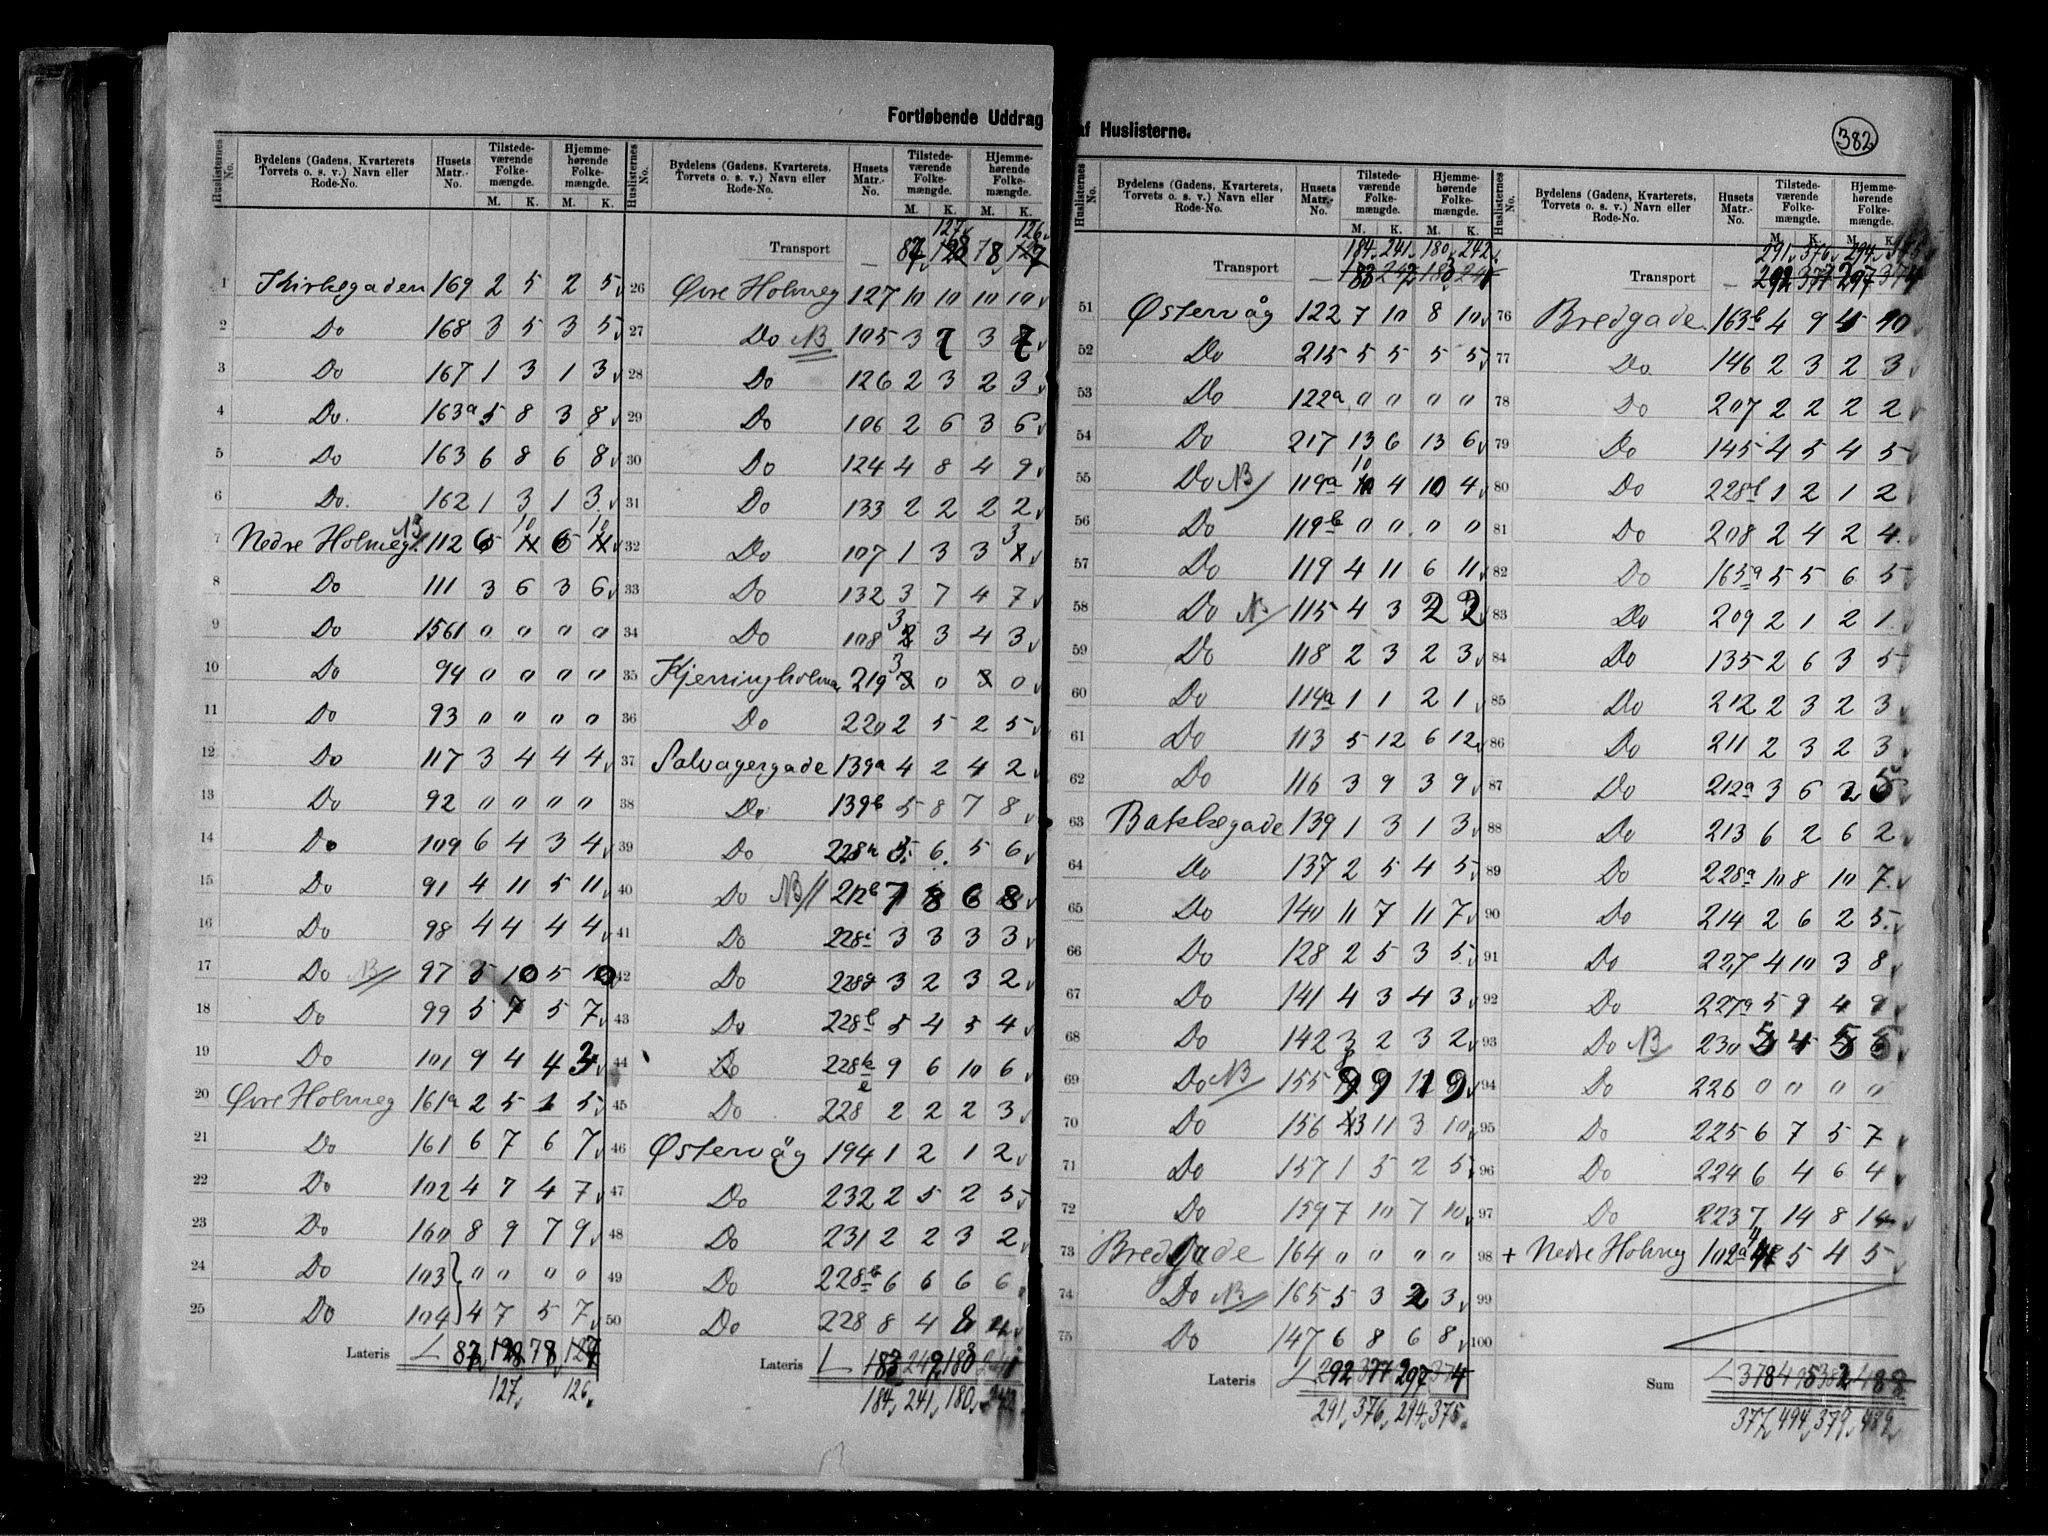 Fortløbende Uddrag af Huslisterne.
382
Huslisternes No. | Bydelens (Gadens, Kvarterets, Torvets o. s. v.) Navn eller Rode-No. | Husets Matr.-No. | Tilstedeværende Folkemængde. M. K. | Hjemmehørende Folkemængde. M. K.
1 Kirkegaden 169 2 5 2 5
2 Do 168 3 5 3 5
3 Do 167 1 3 1 3
4 Do. 163a 5 8 3 8
5 Do 163 6 8 6 8
6 Do. 162 1 3 1 3
7 Nedre Holmeg. NB 112 6 10 6 10
8 Do 111 3 6 3 6
9 Do 1561 0 0 0 0
10 Do 94 0 0 0 0
11 Do 93 0 0 0 0
12 Do 117 3 4 4 4
13 Do 92 0 0 0 0
14 Do 109 6 4 3 4
15 Do 91 4 11 5 11
16 Do 98 4 4 4 4
17 Do NB 97 5 10 5 10
18 Do 99 5 7 5 7
19 Do 101 9 4 4 3
20 Øvre Holmeg 161a 2 5 1 5
21 Do 161 6 7 6 7
22 Do 102 4 7 4 7
23 Do 160 8 9 7 9
24 Do 103 0 0 0 0
25 Do 104 4 7 5 7
Lateris 87 128 78 127
127 126
Huslisternes No. | Bydelens (Gadens, Kvarterets, Torvets o. s. v.) Navn eller Rode-No. | Husets Matr.-No. | Tilstedeværende Folkemængde. M. K. | Hjemmehørende Folkemængde. M. K.
127 126
Transport 87 128 78 127
26 Øvre Holmeg 127 10 10 10 10
27 Do NB 105 3 7 3 7
28 Do 126 2 3 2 3
29 Do 106 2 6 3 6
30 Do 124 4 8 4 9
31 Do 133 2 2 2 2
32 Do 107 1 3 3 3
33 Do 132 3 7 4 7
34 Do 108 3 3 4 3
35 Kjerringholmen 219 3 0 3 0
36 Do 220 2 5 2 5
37 Salvagergade 139a 4 2 4 2
38 Do 139b 5 8 7 8
39 Do 228h 5 6 5 6
40 Do NB 212b 7 8 6 8
41 Do 228i 3 3 3 3
42 Do 228g 3 2 3 2
43 Do 228f 5 4 5 4
44 Do 228 9 6 10 6
45 Do 228e 2 2 2 3
46 Østervåg 194 1 2 1 2
47 Do 232 2 5 2 5
48 Do 231 2 2 3 2
49 Do 228b 6 6 6 6
50 Do 228 8 4 8 4
Lateris 183 242 183 241
184 241 180 242
Huslisternes No. | Bydelens (Gadens, Kvarterets, Torvets o. s. v.) Navn eller Rode-No. | Husets Matr.-No. | Tilstedeværende Folkemængde. M. K. | Hjemmehørende Folkemængde. M. K.
184 241 180 242
Transport 183 242 183 241
51 Østervåg 122 7 10 8 10
52 Do 215 5 5 5 5
53 Do 122a 0 0 0 0
54 Do 217 13 6 13 6
55 Do NB 119a 10 4 10 4
56 Do 119b 0 0 0 0
57 Do 119 4 11 6 11
58 Do NB 115 4 3 2 2
59 Do 118 2 3 2 3
60 Do 114a 1 1 2 1
61 Do 113 5 12 6 12
62 Do 116 3 9 3 9
63 Bakkegade 139 1 3 1 3
64 Do 137 2 5 4 5
65 Do 140 11 7 11 7
66 Do 128 2 5 3 5
67 Do 141 4 3 4 3
68 Do 142 3 2 3 2
69 Do NB 155 9 9 1 9
70 Do 156 3 11 3 10
71 Do 157 1 5 2 5
72 Do 159 7 10 7 10
73 Bredgade 164 0 0 0 0
74 Do NB 165 5 3 2 3
75 Do 147 6 8 6 8
Lateris 292 377 297 374
291 376 294 375
Huslisternes No. | Bydelens (Gadens, Kvarterets, Torvets o. s. v.) Navn eller Rode-No. | Husets Matr.-No. | Tilstedeværende Folkemængde. M. K. | Hjemmehørende Folkemængde. M. K.
291 376 294 375
Transport 292 377 297 374
76 Bredgade 163b 4 9 4 10
77 Do 146 2 3 2 3
78 Do 207 2 2 2 2
79 Do 145 4 5 4 5
80 Do 228 1 2 1 2
81 Do 208 2 4 2 4
82 Do 163a 5 5 6 5
83 Do 209 2 1 2 1
84 Do 135 2 6 3 5
85 Do 212 2 3 2 3
86 Do 211 2 3 2 3
87 Do 212a 3 6 2 5
88 Do 213 6 2 6 2
89 Do 228a 10 8 10 7
90 Do 214 2 6 2 5
91 Do 227 4 10 3 8
92 Do 227a 5 9 4 9
93 Do NB 230 5 4 5 5
94 Do 226 0 0 0 0
95 Do 225 6 7 5 7
96 Do 224 6 4 6 4
97 Do 223 7 14 8 14
98 + Nedre Holmeg 102a 4 5 4 5
99
100
Sum 378 495 382 488
377 494 379 489